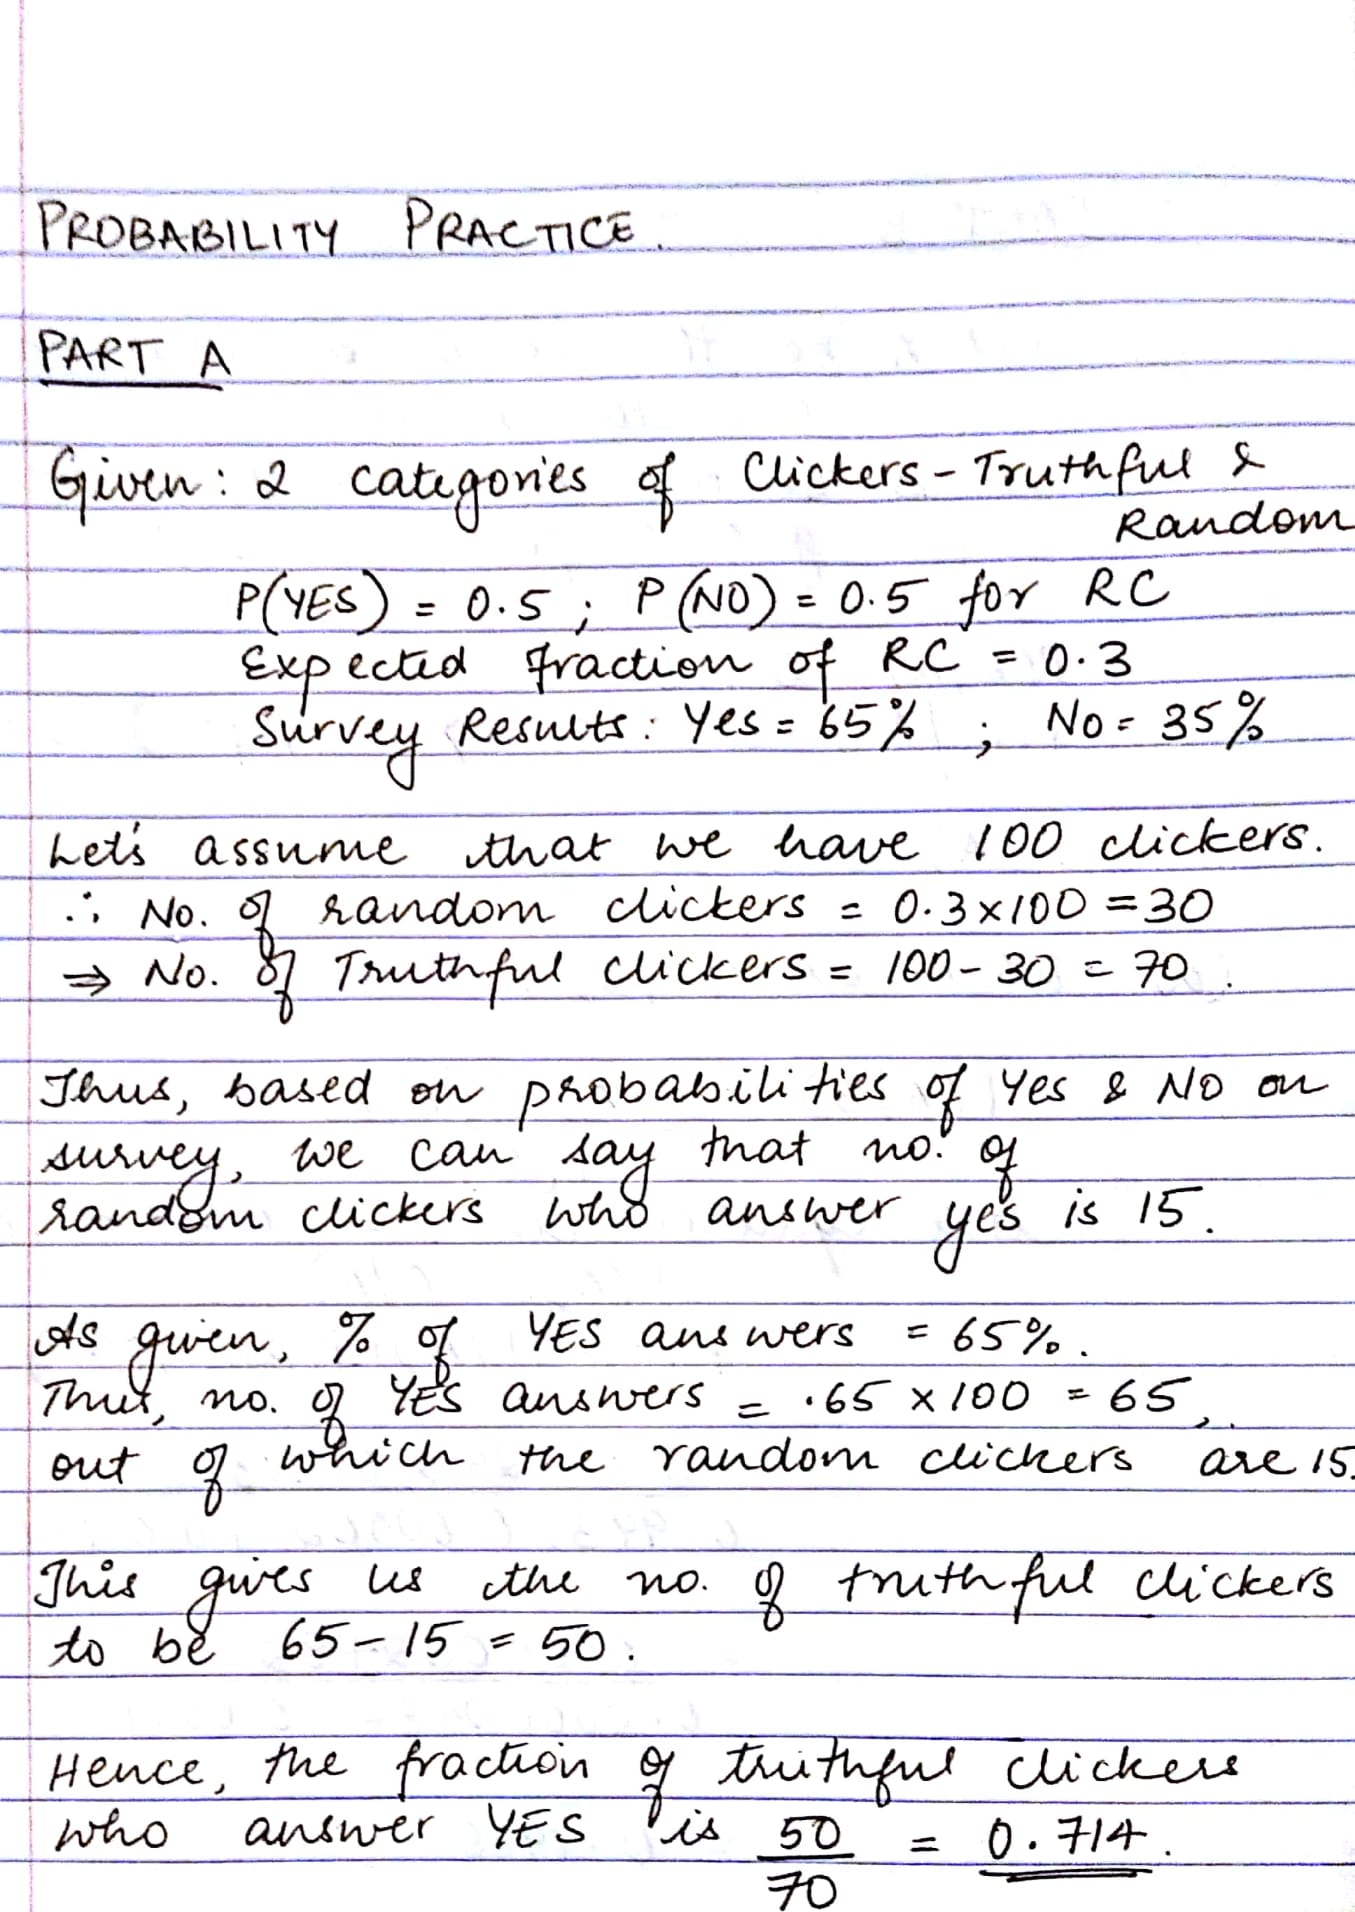 PROBABILITY PRACTICE.
PART A
Given: 2 categories of Clickers - Truthful &
Random
P(YES) = 0.5 ; P(NO) = 0.5 for RC
Expected fraction of RC = 0.3
Survey Results: Yes = 65% ; No = 35%
Let's assume that we have 100 clickers.
∴ No. of random clickers = 0.3×100 = 30
⇒ No. of Truthful clickers = 100 - 30 = 70.
Thus, based on probabilities of Yes & NO on
survey, we can say that no. of
random clickers who answer yes is 15.
As given, % of YES answers = 65%.
Thus, no. of YES answers = .65 × 100 = 65,
out of which the random clickers are 15.
This gives us the no. of truthful clickers
to be 65 - 15 = 50.
Hence, the fraction of truthful clickers
who answer YES is 50/70 = 0.714.